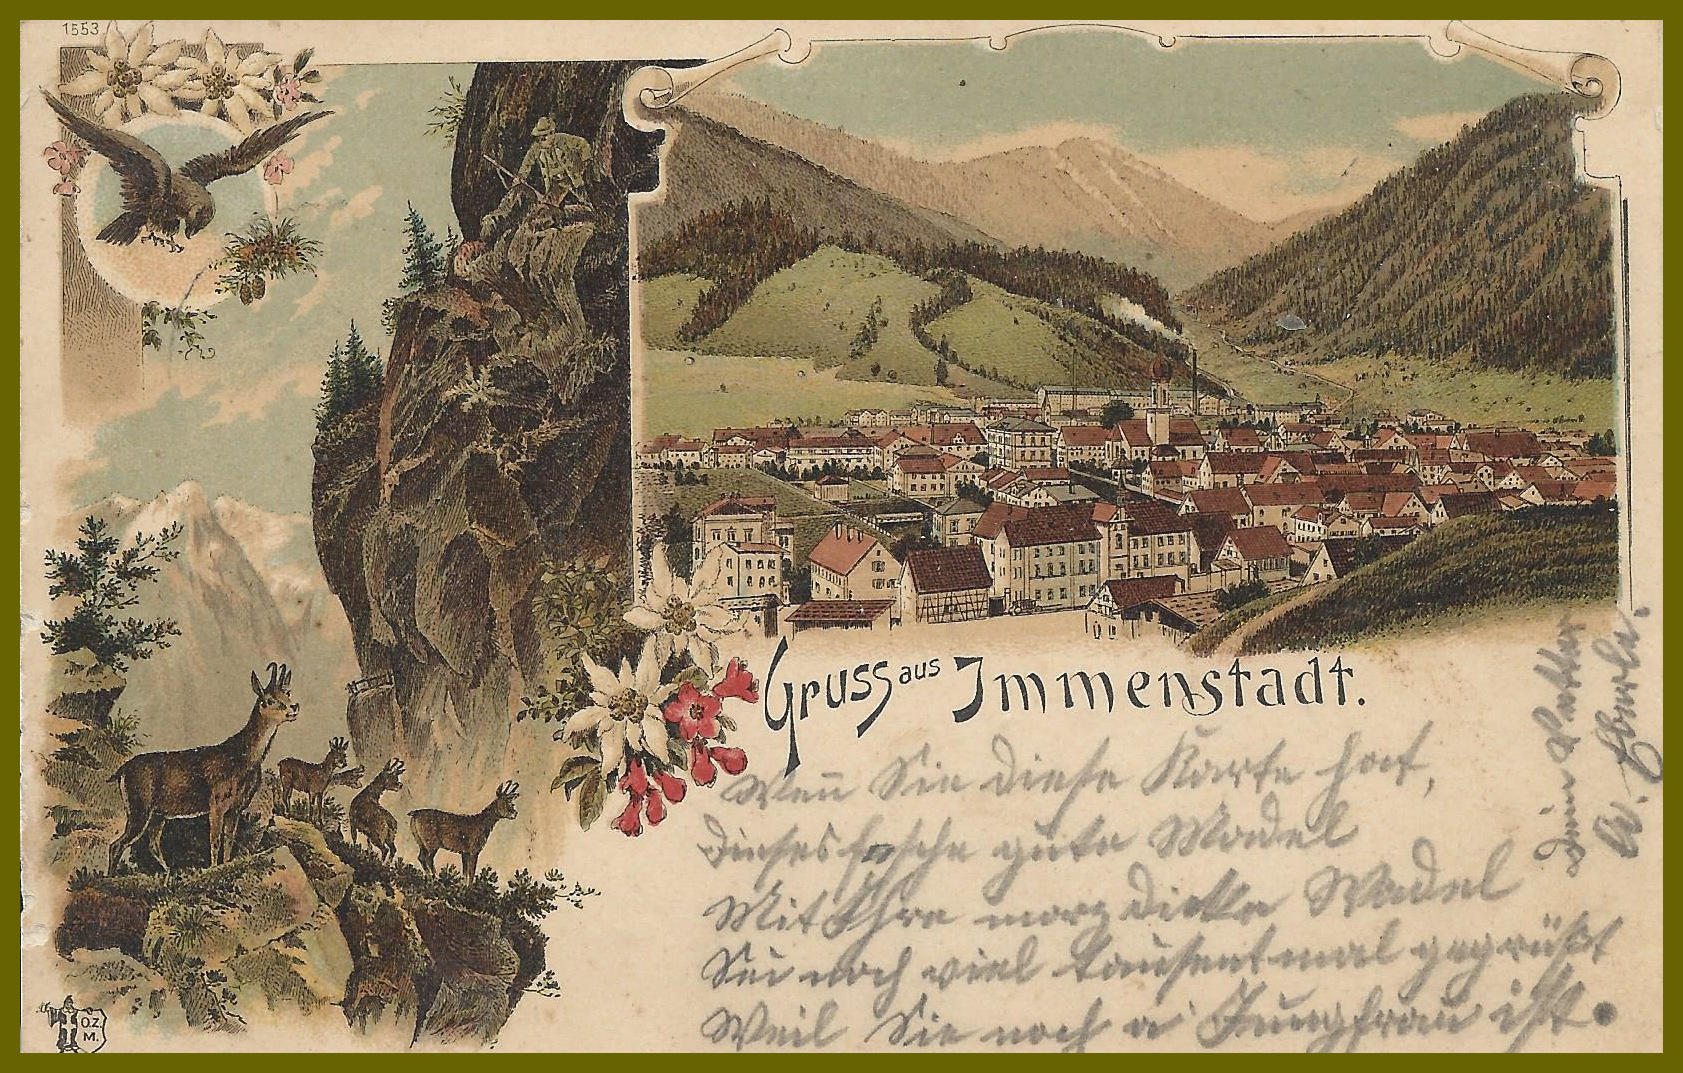 1553
Gruss aus Immenstadt.
Wen̄ Sie diese Karte hat,
Dieses fesche gute Madel
Mit Ihre morz dicke Wadel
Sei noch viel tausent mal gegrüßt
Weil Sie noch a Jungfrau ist.
Dein Vetter
W. Eberle.
O.Z.
M.